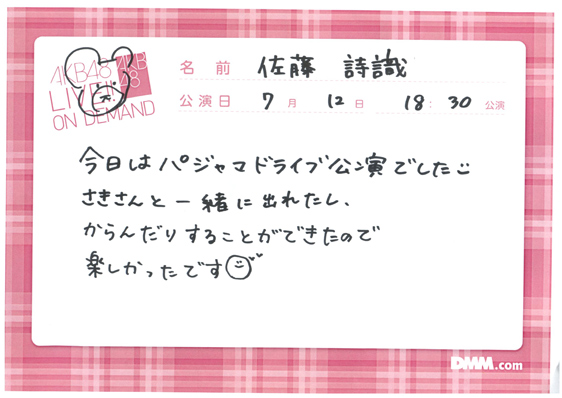 AKB48
LIVE!!
ON DEMAND
AKB
48
名前 佐藤 詩識
公演日 7月 12日 18:30 公演
今日はパジャマドライブ公演でした
さきさんと一緒に出れたし、
からんだりすることができたので
楽しかったです
DMM.com